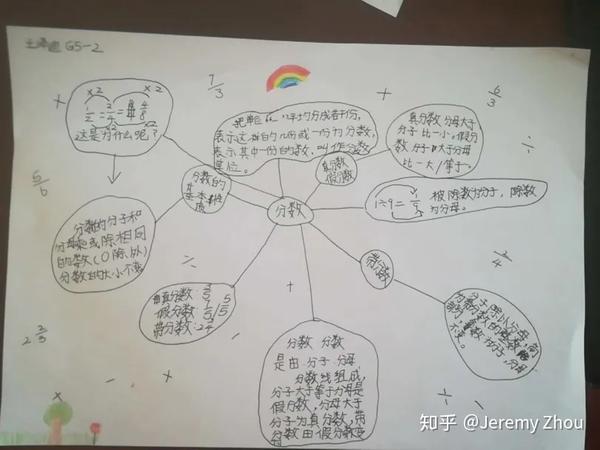 G5-2
×2 ×2
1/2 = 2/4 = 4/8
×2 ×2
这是为什么呢?
7/3
把单位“1”平均分成若干份,
表示这样的几份或一份为分数,
表示其中一份的数,叫作分数
单位。
真分数 分母大于
分子 比一小,假分
数 分子大于分母
比一大/等于。
6/3
5/6
分数的
基本
真分数
假分数
分数
1÷9=1/9 被除数为分子,除数
为分母。
分数的分子和
分母乘或除相同
的数(0除外)
分数的大小不变
带分数
3/4
真分数:3/5
假分数:7/5 5/5
带分数:2
2 2/3
分数 分数
是由 分子 分母
分数线 组成,
分子大于等于分母是
假分数,分母大于
分子为真分数,带
分数由假分数
分子除以分母,商
为带分数的整数
分子,分母
不变
知乎 @Jeremy Zhou